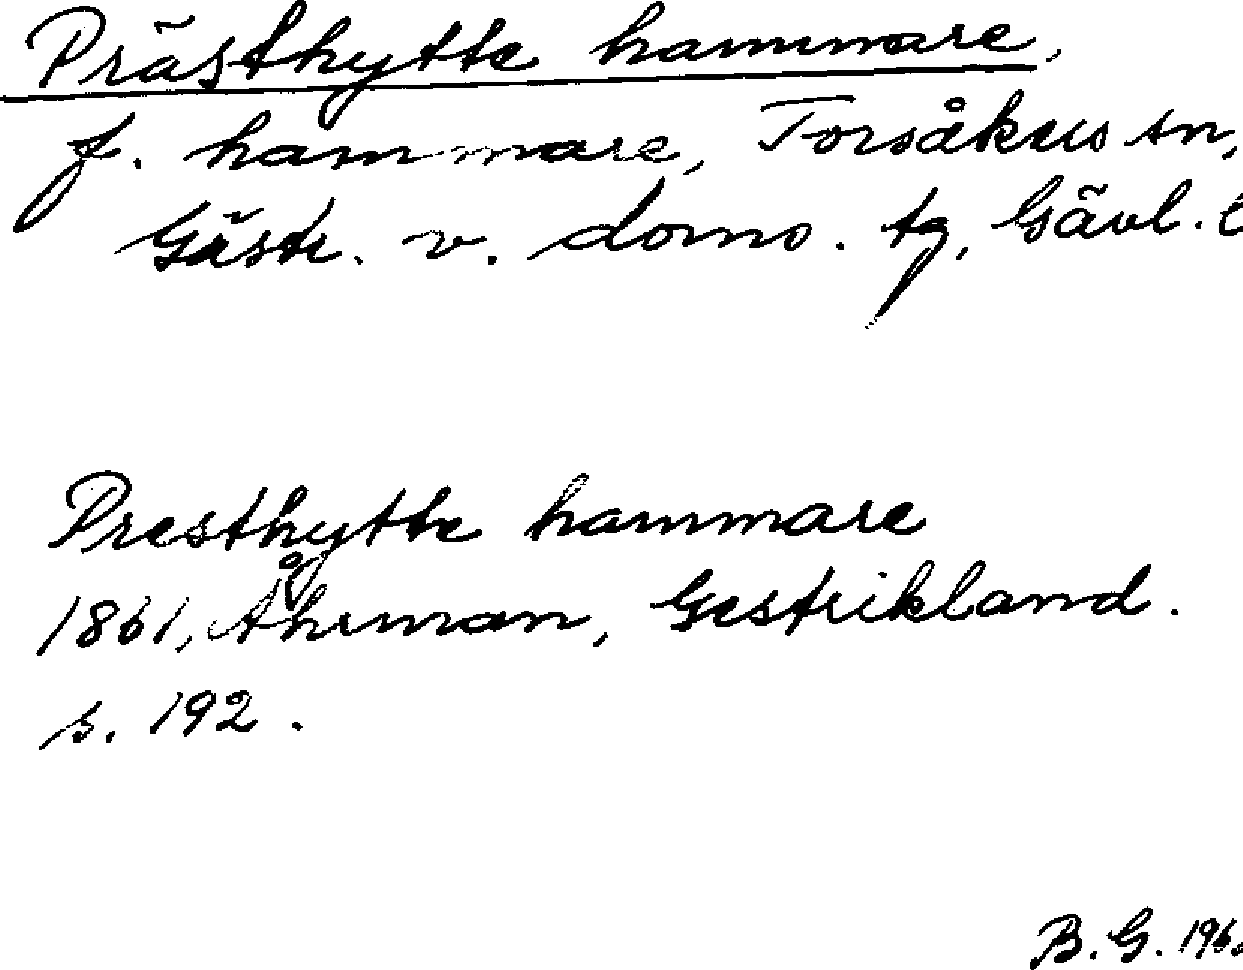 Prästhytte hammare,
f. hammare, Torsåkers sn,
Gästr. v. doms. tg, Gävl.
Presthytte hammare
1861, Åhrman, Gestrikland.
s. 192.
B. G.